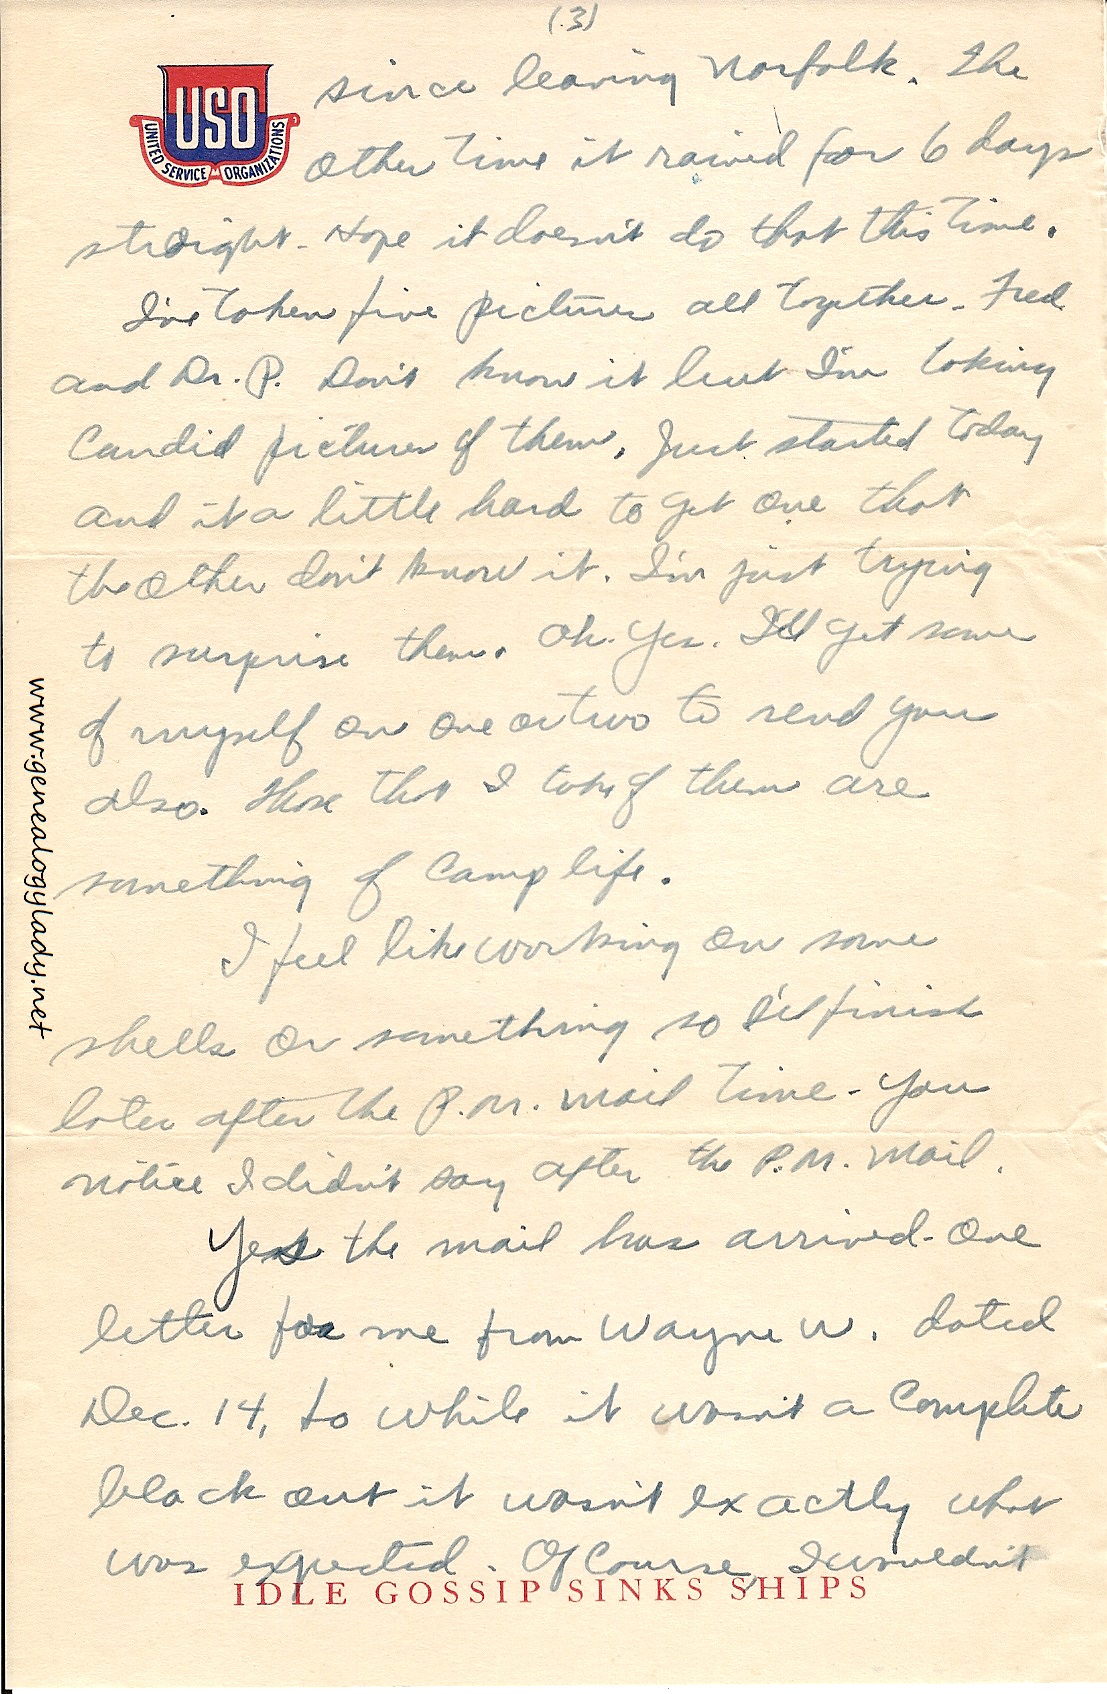 (3)
USO
UNITED SERVICE ORGANIZATIONS
since leaving Norfolk. The
other time it rained for 6 days
straight - Hope it doesn't do that this time.
I've taken five pictures all together - Fred
and Dr. P. Don't know it but I'm taking
Candid pictures of them. Just started today
and it a little hard to get one that
the other don't know it. I'm just trying
to surprise them. Oh. Yes. I'll get some
of myself on one or two to send you
also. Those that I take of them are
something of Camp life.
I feel like working on some
shells or something so I'll finish
later after the P.M. mail time - you
notice I didn't say after the P.M. Mail.
Yes the mail has arrived - One
letter for me from Wayne W. dated
Dec. 14, to while it wasn't a Complete
black out it wasn't exactly what
was expected. Of Course, I wouldn't
IDLE GOSSIP SINKS SHIPS
www.genealogylady.net